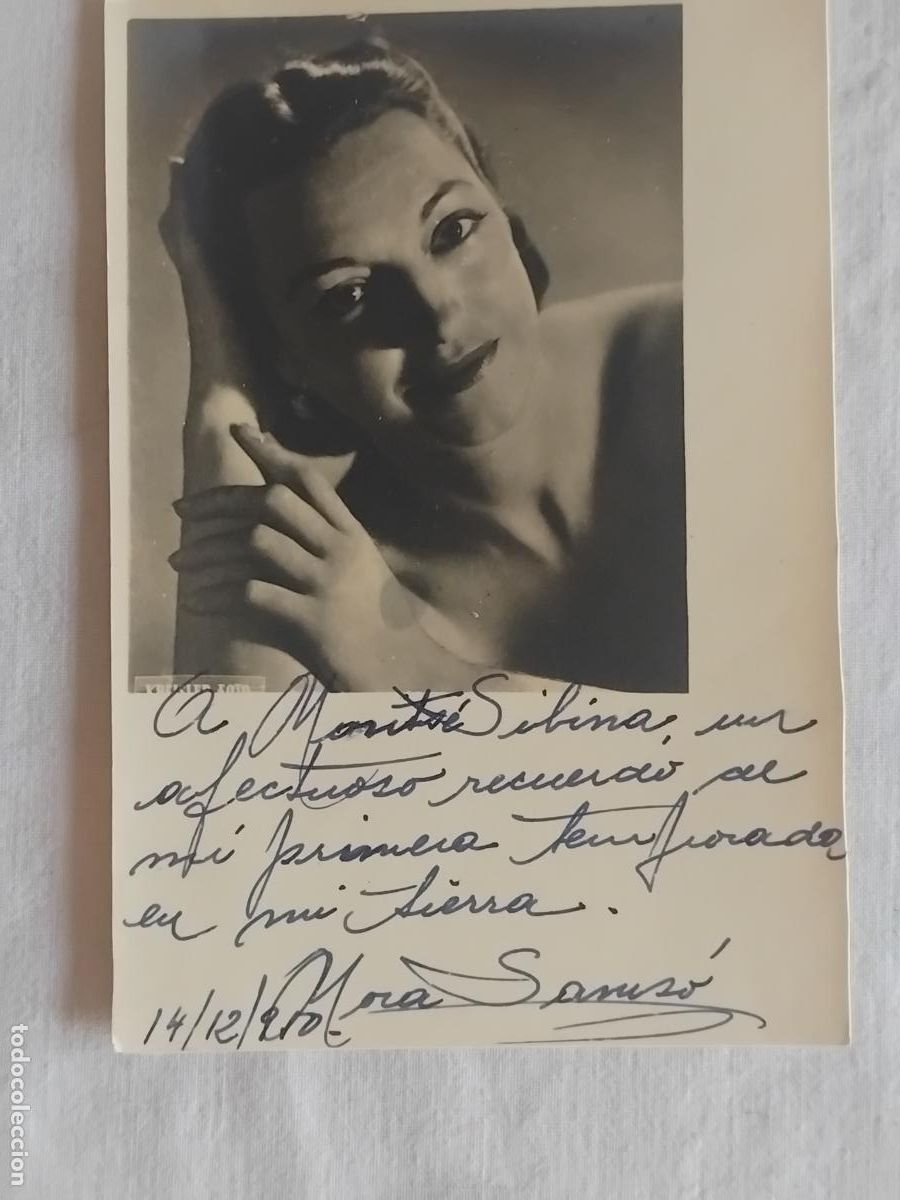 A Montsé Sibina, un
afectuoso recuerdo de
mi primera temporada
en mi tierra.
Mora Samsó
14/12/
todocoleccion